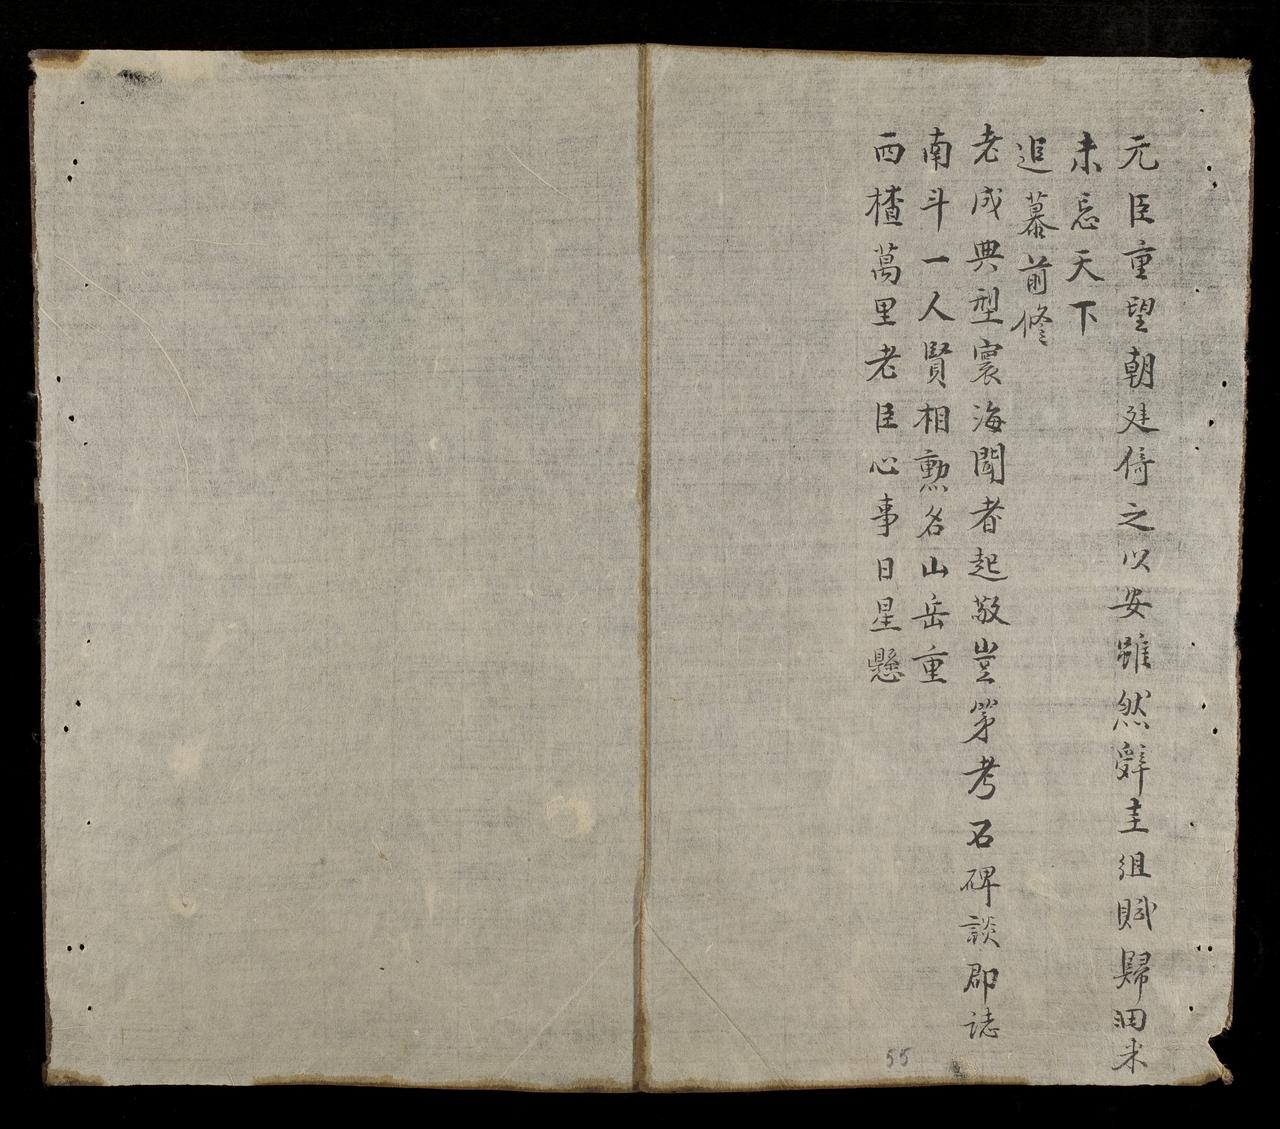 元臣重望朝廷倚之以安雖然辭圭組賦歸田米
未忘天下
追慕前修
老成典型寰海聞者起敬豈第考石碑談郡誌
南斗一人賢相勳名山岳重
西楂萬里老臣心事日星懸
55